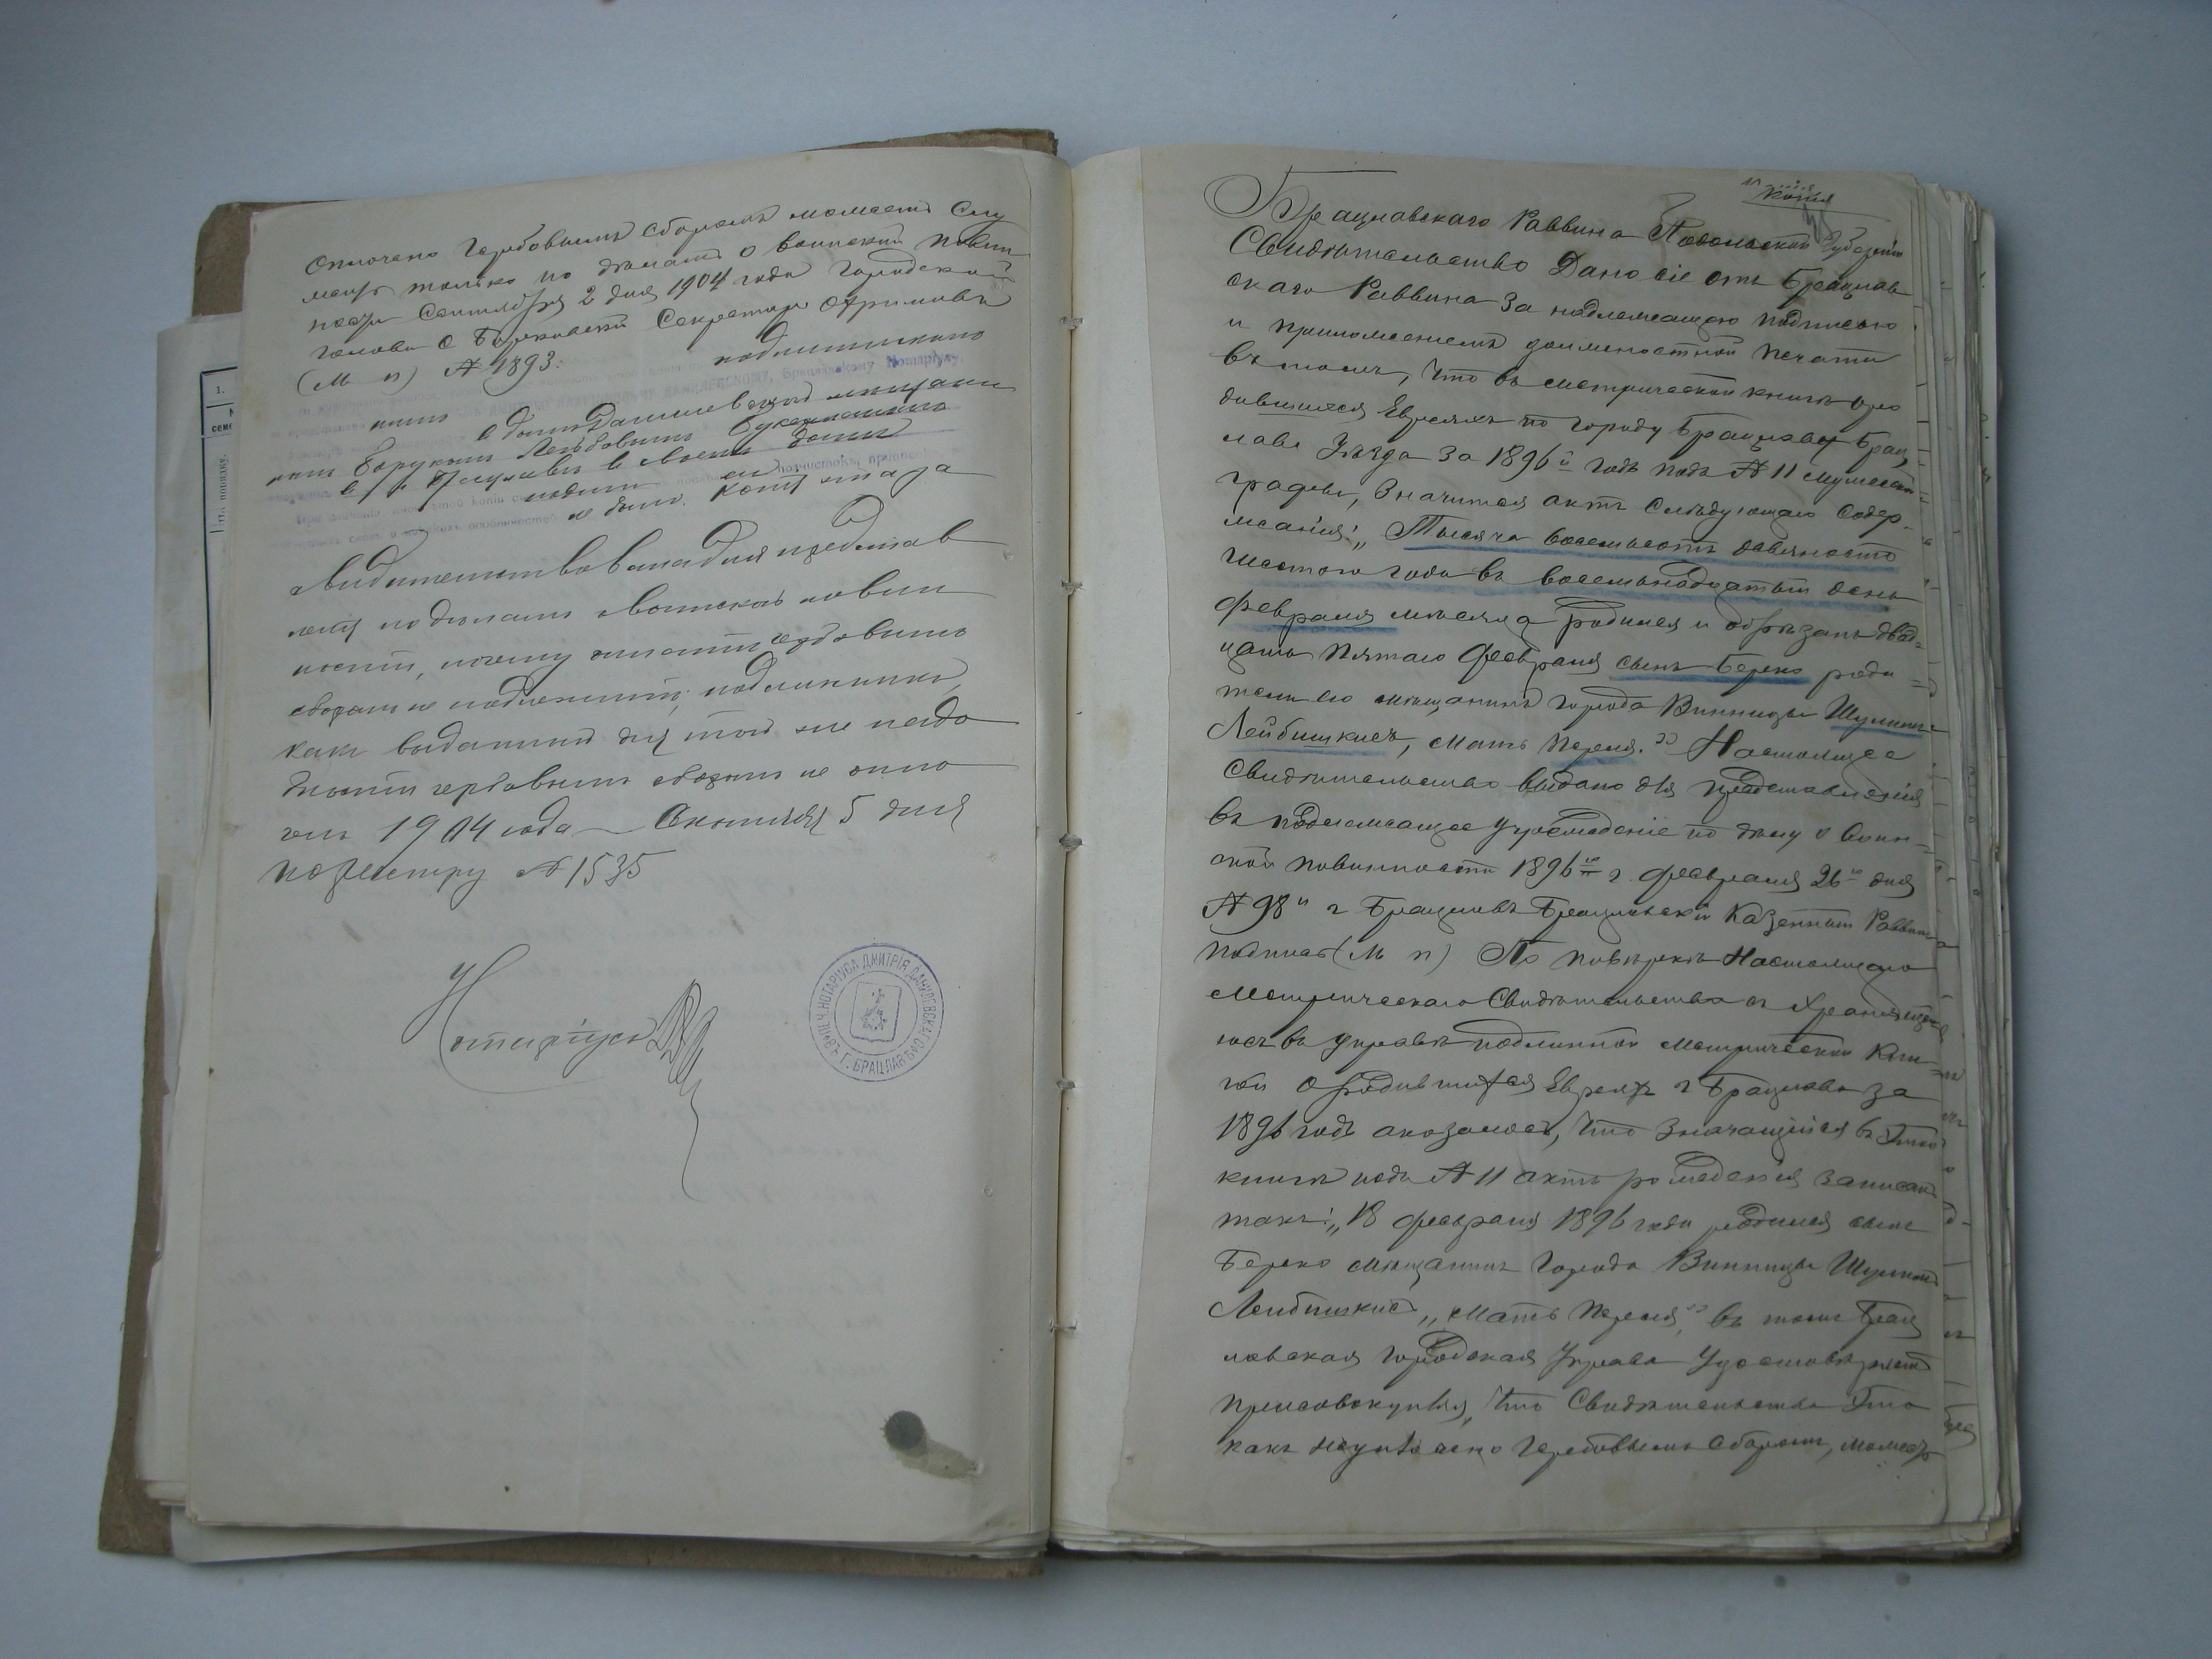 Оплочено Гербовымъ Сборомъ можетъ Слу
жить только по дѣламъ о воинской повин
ности Сентября 2 дня 1904 года Городской
Голова С Секретарь
(М п) № 1893.
подлинникомъ
мѣщани
номъ Борухомъ Лейбовымъ
въ г. Брацлавѣ в домѣ
не было. Копія эта за
свидетельствована для представ
ленія по дѣламъ о воинской повин
ности, почему оплатѣ гербовымъ
сборомъ не подлежитъ; подлинникъ,
какъ выданный для той же надо
бности гербовымъ сборомъ не опло
ченъ 1904 года Октября 5 дня
по реестру № 1535
Нотаріусъ
ПЕЧ. НОТАРІУСА ДМИТРІЯ ДАНИЛЕВСКАГО ВЪ Г. БРАЦЛАВѢ
1.
СЕМ
По порядку.
Копія
Брацлавскаго Раввина Подольской Губерніи
Свидѣтельство Дано сіе отъ Брацлав
скаго Раввина за надлежащею подписью
и приложеніемъ должностной печати
въ томъ, что въ метрической книгѣ о ро
дившихся Евреяхъ по городу Брацлаву Брац
лава Уѣзда за 1896й годъ подъ № 11 мужеской
графы, значится актъ слѣдующаго содер-
жанія: „Тысяча восемьсотъ девяносто
шестого года въ восемьнадцатый день
февраля мѣсяца родился и обрѣзанъ двад-
цать пятаго февраля сынъ Берко роди
тели его мѣщанинъ города Винницы Шулимъ
Лейбишкисъ, мать Перля." Настоящее
Свидѣтельство выдано для представленія
въ подлежащее учрежденіе по дѣлу о воин-
ской повинности 1896го г. февраля 26го дня
№ 98й г Брацлавъ Брацлавскій Казенный Раввинъ
подписъ (М п) По повѣркѣ Настоящаго
Метрическаго Свидѣтельства съ хранящею
юся въ управѣ подлинной метрической кни-
ги о родившихся Евреяхъ г Брацлава за
1896 годъ оказалось, что значащійся въ этой
книгѣ подъ № 11 актъ рожденія записанъ
такъ: „18 февраля 1896 года родился сынъ
Берко мѣщанинъ города Винницы Шулимъ
Лейбишкисъ, „мать Перля", въ томъ Брац
лавская городская Управа Удостовѣряетъ
присовокупляя, что Свидѣтельство это
какъ не оплочено Гербовымъ Сборомъ, может